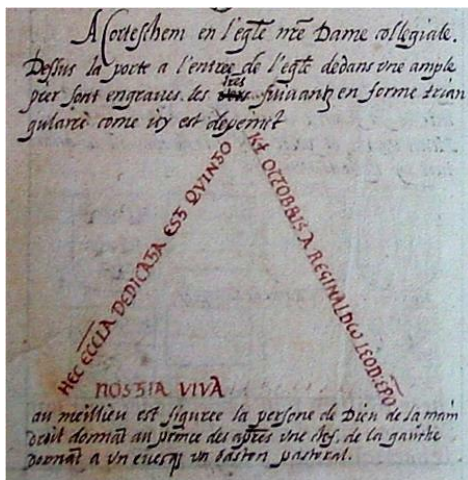 A Corteshem en l'egle nre Dame collegiale.
Dessus la porte a l'entree de l'egle dedans vne ample
pier sont engraues les tres suiuantz en forme trian
gulaire come icy est depeinct
HEC ECCLA DEDICATA EST QVINTO
KL OCTOBRIS A REGINALDO LEODIEN
HOSTIA VIVA
au meillieu est figuree la persone de Dieu de la main
droit donnãt au prince des aptres vne clef, de la gauche
donnãt a vn euesq vn baston pastoral.